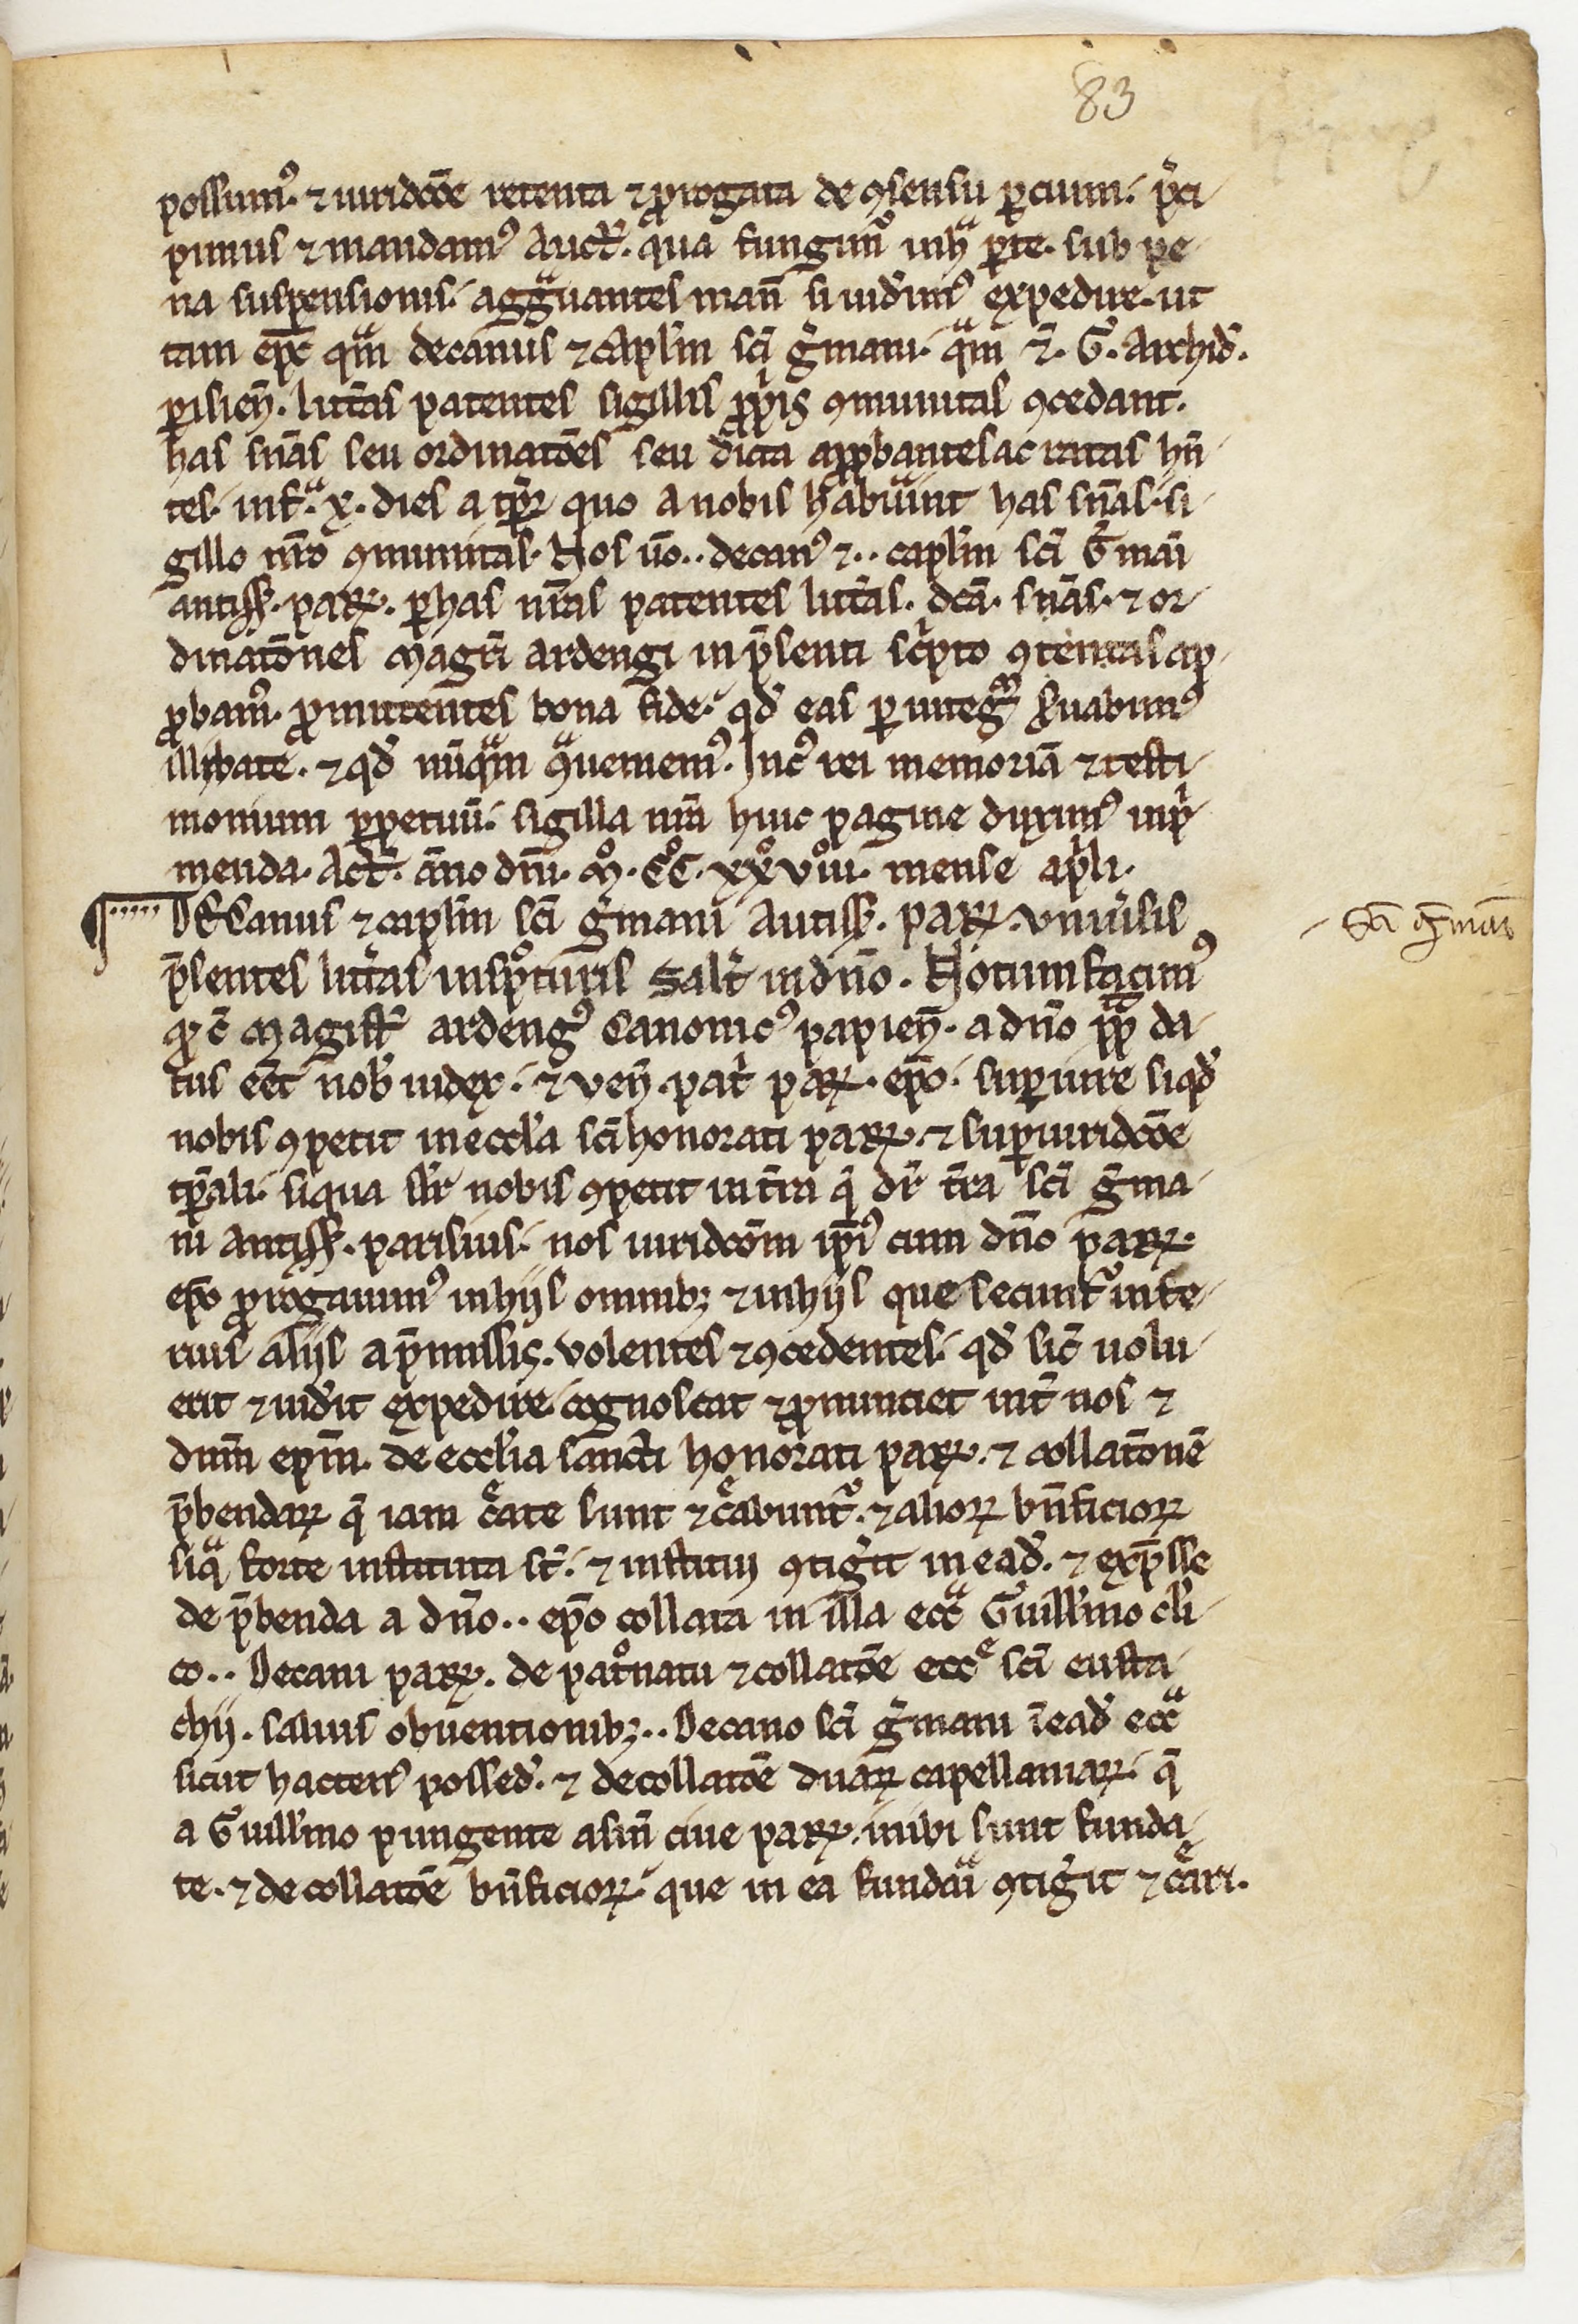 83
possumꝰ. ⁊ iuridc̄oe retenta ⁊ ꝓrogata de ꝯsensu ꝑcium. p̄ci-
pimus ⁊ mandamꝰ Auct̄. qua fungimur in hᵃ ꝑte. sub pe-
na suspensionis. agg̃uantes man̄ si uid̓imꝰ expedire. ut
tam ep̄c qᵃm decanus ⁊ capl̓m sc̄i g̓mani. qᵃm ⁊. G. Archid̓.
ꝑisien̄. litt̓as patentes sigillis ꝓpͥis ꝯmunitas ꝯcedant.
has sn̄ias seu ordinatōes seu d̓icta apꝓbantes ac ratas hn̄-
tes. infᵃ. x. dies a tp̄r quo a nobis habuͥint has sn̄ias. si-
gillo nr̄o ꝯmunitas. Nos u̓o.. decanꝰ ⁊.. capl̓m sc̄i G̓mani
antiss̄. parꝝ. ꝑ has nr̄as patentes litt̓as. dc̄ā. sn̄ias. ⁊ or-
dinatōnes Magr̄i ardengi in p̄senti scͥpto ꝯtentas ap-
ꝓbamꝰ. ꝓmittentes bona fide. qd̓ eas ꝑ integᵐ s̓uabimꝰ
illibate. ⁊ qd̓ nūqᵃm ꝯᵃueniemꝰ. In cꝰ rei memoriā ⁊ testi-
monium ꝑpetuū. sigilla nr̄a huic pagine duximꝰ inpͥ-
menda. Act̄. āno dn̄i. Mͦ. CͦC. xxͦ viiiͦ. mense apͥli.
DECanus ⁊ capl̓m sc̄i g̓mani Autiss̄. parꝝ. vniu̓sis
p̄sentes litt̓as insp̄turis Salt̓ in dn̄o. Notum facimꝰ
ꝙ c̄ Magist̓ ardengꝰ Canonicꝰ papien̄. a dn̄o pp̄ da-
tus eēt nob̓ iudex. ⁊ ven̄. pat̓ parꝝ. ep̄o. suꝑ iure si qd̓
nobis ꝯpetit in eccl̓a sc̄i honorati parꝝ. ⁊ suꝑ iuridc̄oe
tp̄ali. si qua sil̓r nobis ꝯpetit in t̓ra q̄ dr̄ t̓ra sc̄i g̓ma-
ni Antiss̄. parisius. nos iuridc̄om ip̄iꝰ cum dn̄o parꝝ.
ep̄o ꝓrogauimꝰ in hijs omnibꝫ ⁊ in hijs que secunt̓ infe-
rius alijs a p̄missis. volentes ⁊ ꝯcedentes. qd̓ sic̄ uolu-
erit ⁊ uid̓it expedire cognoscat ⁊ ꝓnunciet int̓ nos ⁊
dn̄m ep̄m. de eccl̓ia sancti honorati parꝝ. ⁊ collatōnē
p̄bendarꝝ q̄ iam cͤate sunt ⁊ cͤabuntꝰ. ⁊ aliorꝝ bn̄ficiorꝝ
siqᵃ forte instituta st̄. ⁊ institui ꝯtig̓it in ead̓. ⁊ exp̄sse
de p̄benda a dn̄o.. ep̄o collata in illa eccᵃ Guill̓mo cl̓i-
co.. Decani parꝝ. de patͦnatu ⁊ collatōe eccͤ sc̄i eusta-
chij. saluis obuentionibꝫ.. Decano sc̄i g̓mani ī ead̓ eccᵃ
sicut hactenꝰ possed̓. ⁊ de collatōe duarꝝ capellaniarꝝ. q̄
a Guill̓mo pungente asin̄ ciue parꝝ. inibi sunt funda-
te. ⁊ de collatōe bn̄ficiorꝝ. que in ea fundari ꝯtig̓it ⁊ cͤari.
Sc̄i G̓mani